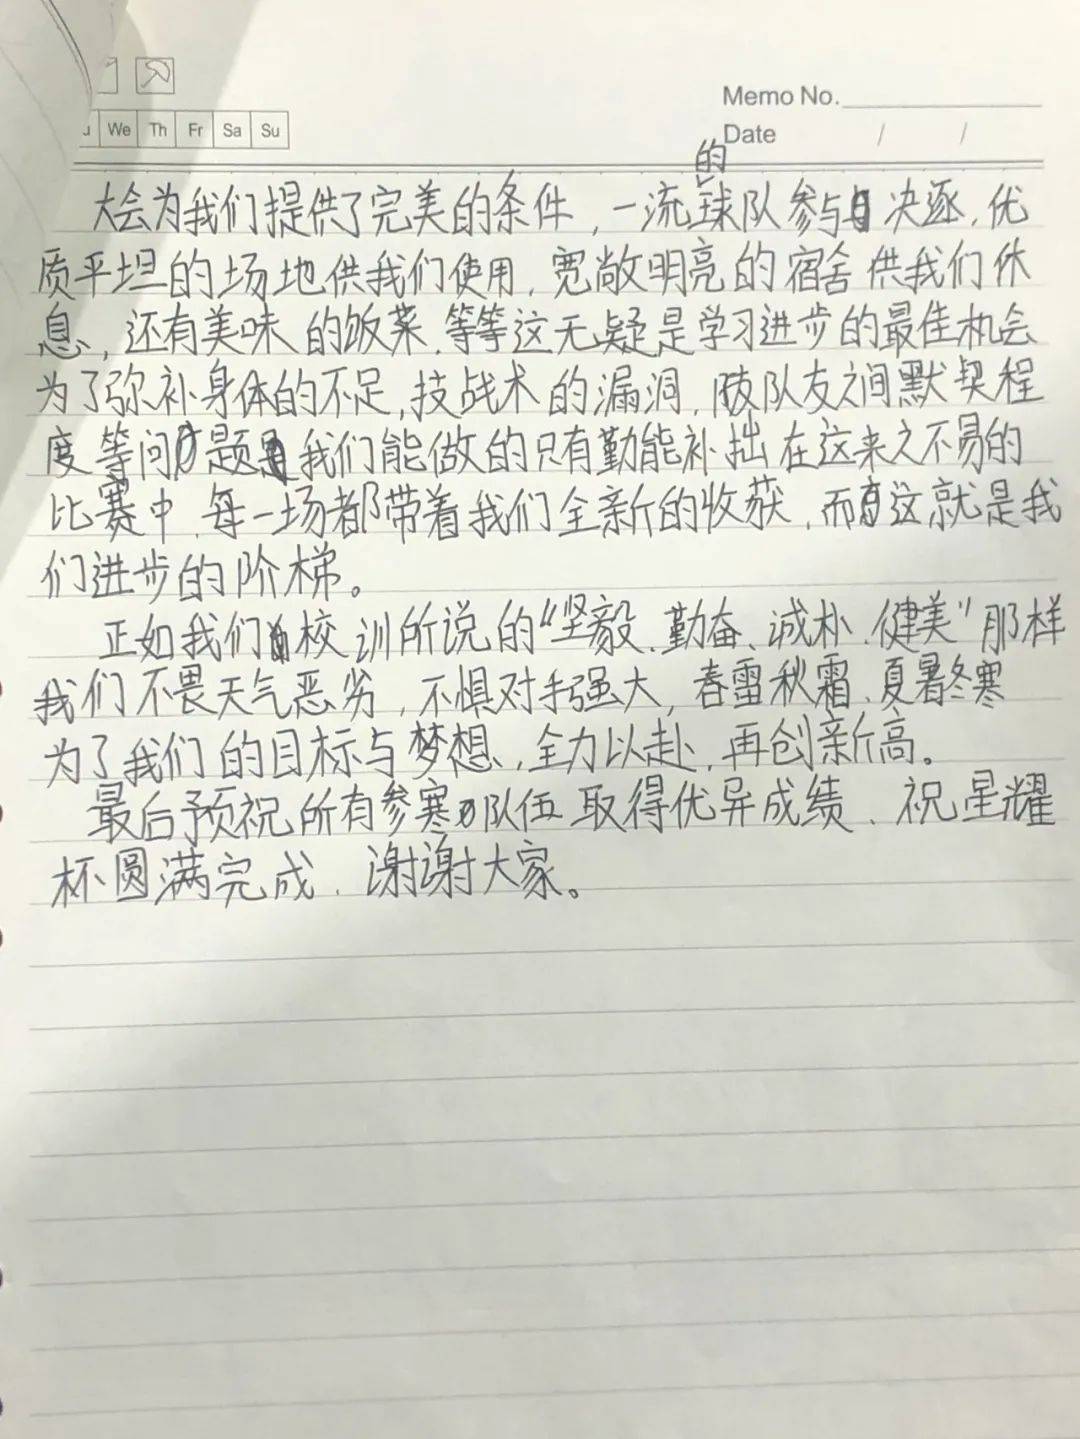 Memo No.
We Th Fr Sa Su
Date / /
大会为我们提供了完美的条件，一流的球队参与决逐，优
质平坦的场地供我们使用，宽敞明亮的宿舍供我们休
息，还有美味的饭菜，等等这无疑是学习进步的最佳机会
为了弥补身体的不足，技战术的漏洞，队友之间默契程
度等问题，我们能做的只有勤能补拙在这来之不易的
比赛中，每一场都带着我们全新的收获，而这就是我
们进步的阶梯。
正如我们校训所说的“坚毅、勤奋、诚朴、健美”那样
我们不畏天气恶劣，不惧对手强大，春雷秋霜、夏暑冬寒
为了我们的目标与梦想，全力以赴，再创新高。
最后预祝所有参赛队伍取得优异成绩，祝星耀
杯圆满完成，谢谢大家。